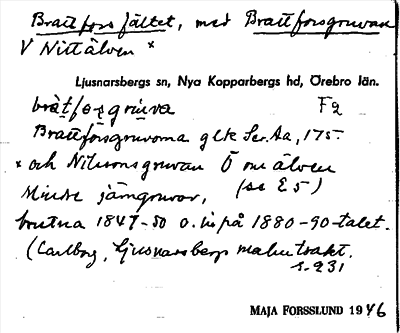 Brattforsfältet, med Brattforsgruvan
V Nittälven x
Ljusnarsbergs sn, Nya Kopparbergs hd, Örebro län.
bràtforsgrùva F2
Brattforsgruvorna glk Ser. Aa, 175
x och Nilssonsgruvan Ö om älven
Mindre järngruvor, (se E5)
brutna 1847-50 o. in på 1880-90-talet.
(Carlborg, Ljusnarsbergs malmtrakt.
s. 231
MAJA FORSSLUND 1946